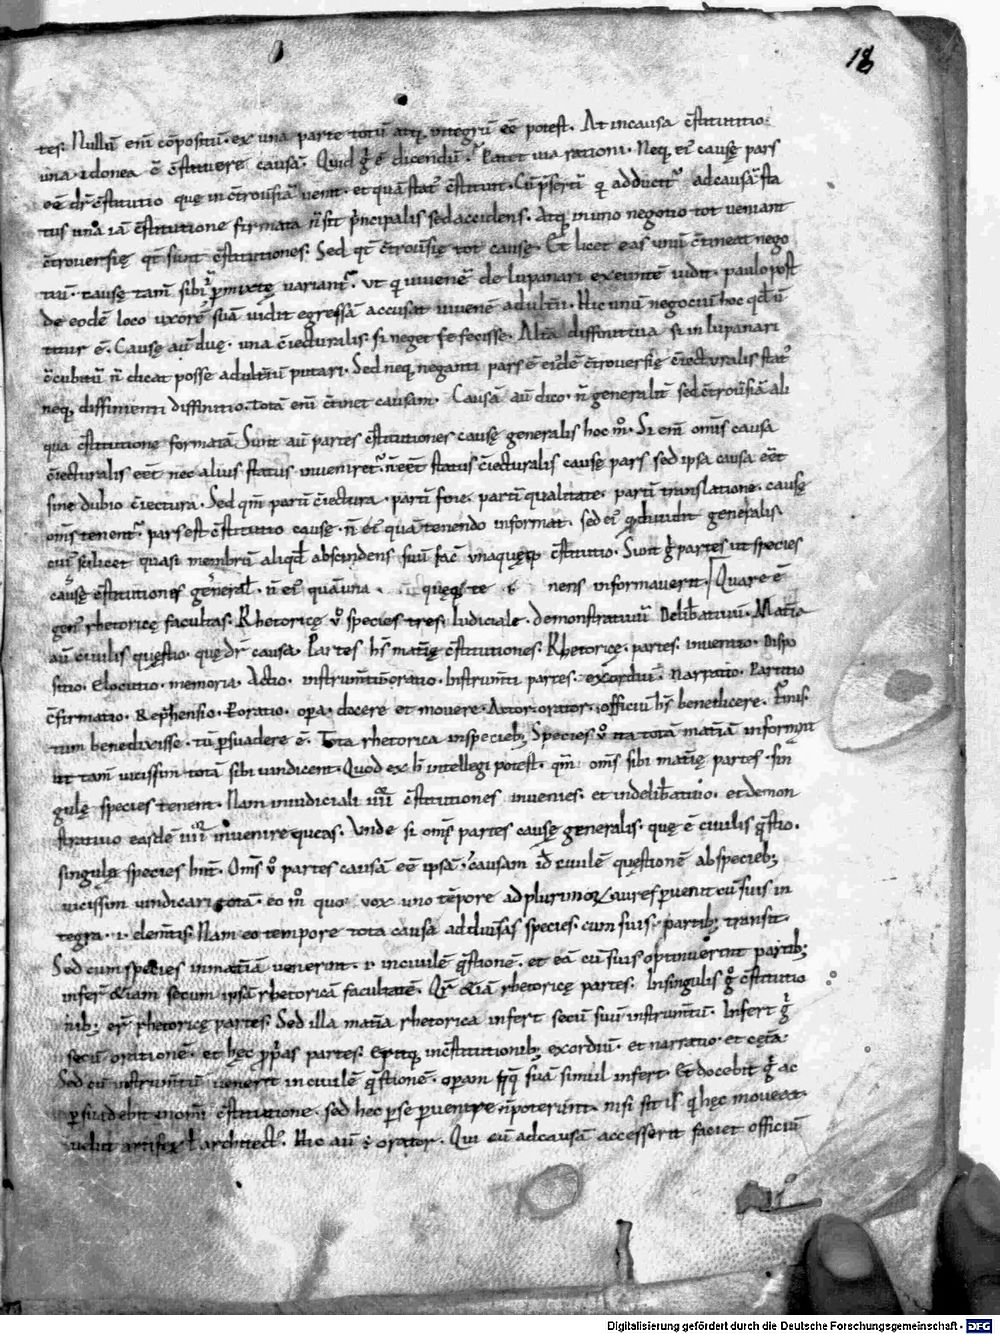 18
tes. Nullū enī cōpositū. ex una parte totū atq; integrū eē potest. At in causa c̄stitutio.
una. idonea ē c̄stituere causā. Quid g̊ ē dicendū. Patet uia rationi. Neq; ei᷒ causę pars
eē dr̄ c̄stitutio quę in c̄trouersiā uenit. et quā stat᷒ c̄stituit. adducit᷒ ad causā sta
tus unā iā c̄stitutione firmata n̄ sit principalis sed accidens. Atq; in uno negotio tot ueniant
c̄trouersię qt̄ sunt c̄stitutiones. Sed qt̄ c̄trouersię tot causę. Et licet eas unū c̄tineat nego
tiū. causę tam̄ sibi permixtę uariant᷒. ut q̄ iuuenē de lupanari exeuntē uidit. paulo post
de eodē loco uxorē suā uidit egressā accusat iuuenē adulterii. Hic unū negociū hoc qd̄ ū
titur ē. Causę aū duę. una c̄iecturalis. si neget se fecisse. Altā diffinitiua si in lupanari
c̄cubitū n̄ dicat posse adulteriū putari. Sed neq; neganti pars ē ei᷒dē c̄trouersię c̄iecturalis stat᷒
neq; diffinienti diffinitio. totā enī c̄tinet causam. Causā aū dico. n̄ generalitē sed c̄trouersiā ali
qua c̄stitutione formatā. Sunt aū partes c̄stitutiones causę generalis hoc m̊. Si enī omīs causa
c̄iecturalis eēt nec alius status inueniret᷒. n̄ eēt status c̄iecturalis causę pars sed ipsa causa eēt
sine dubio c̄iectura. Sed qm̄ partī c̄iectura. partī fine. partī qualitate. partī translatione. causę
omīs tenent᷒. pars est c̄stitutio causę. n̄ ei᷒ quā tenendo informat. sed ei᷒ generalis
cui᷒ scilicet quasi membrū aliqd̄ abscindens suū fac̄ unaquęq; c̄stitutio. Sunt g̊ partes ut species
causę c̄stitutiones general᷒. n̄ ei᷒ quā una nens informauerit. Quare ē
gen᷒ rhetoricę facultas. Rhetoricę u̇ species tres. Iudiciale. demonstratiuū Deliberatiuū. Matīa
aū ciuilis quęstio. quę dr̄ causa. Partes h᷒ matīę c̄stitutiones. Rhetoricę. partes. inuentio. Dispo
sitio. Elocutio. memoria. Actio. instrumtū oratio. Instrumti partes. exordiū. Narratio. Partitio
c̄firmatio. Rep̄hensio. P̄oratio. opa. docere et mouere. Actor. orator. officiū h᷒ benedicere. Finis.
tum benedixisse. tū p̄suadere ē. Tota rhetorica in specieb; Species u̇ ita totā matīā informant
ut tam̄ uicissim totā sibi uindicent. Quod ex h᷒ intellegi potest. qm̄ omīs sibi matīę partes. sin
gulę species tenent. Nam in iudiciali iiii c̄stitutiones inuenies. et in deliberatiuo. et demon
stratiuo easdē iiii inuenire queas. Unde si omīs partes causę generalis. quę ē ciuilis q̄stio.
singulę species hnt. Omīs u̇ partes causā eē ipsā. causam id̄ ciuilē quęstionē ab specieb;
uicissim uindicari totā. eo m̊ quo uox uno tēpore ad plurimoꝝ aures puenit cū suis in
tegra. i. elemtis. Nam eo tempore tota causa ad diuersas species. cum suis partib; transit.
Sed cum species in matīā uenerint. i. in ciuilē q̄stionē. et eā cū suis optinuerint partib;
infer̄ &iam secum ipsā rhetoricā facultatē. Qr̄ &iā rhetoricę partes. In singulis g̊ c̄stitutio
nib; er̄ rhetoricę partes. Sed illa matīa rhetorica infert secū suū instrumtū. Infert g̊
secū orationē. et hęc p̄p̄as partes. Eritq; in c̄stitutionib; exordiū. et narratio. et cęta.
Sed cū instrumtū uenerit in ciuilē q̄stionē. opam suā simul infert. Et docebit g̊ ac
p̄suadebit in omī c̄stitutione. sed hec p se puenire n̄ poterunt. nisi sit is q̄ hęc moueat.
uelut artifex ł architect᷒. Hic aū ē orator. Qui cū ad causā accesserit faciet officiū
Digitalisierung gefördert durch die Deutsche Forschungsgemeinschaft - DFG